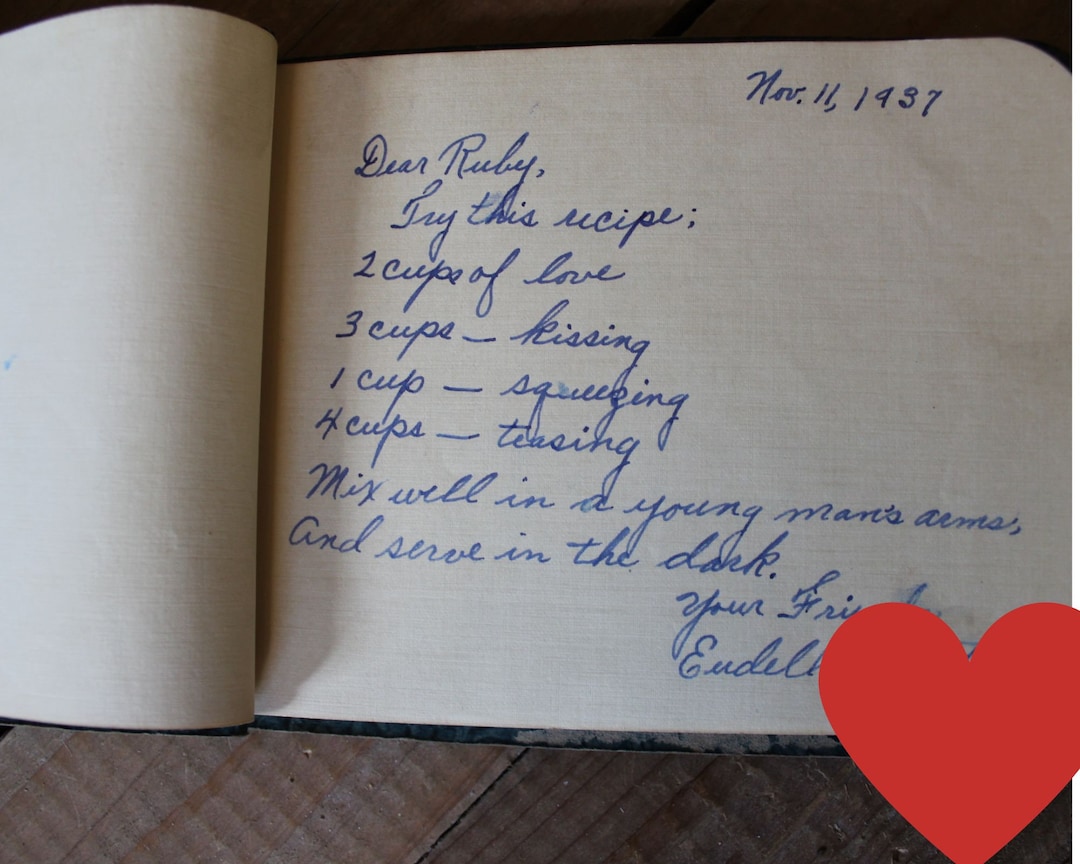 Nov. 11, 1937
Dear Ruby,
Try this recipe;
2 cups of love
3 cups — kissing
1 cup — squeezing
4 cups — teasing
Mix well in a young man's arms,
And serve in the dark.
Your